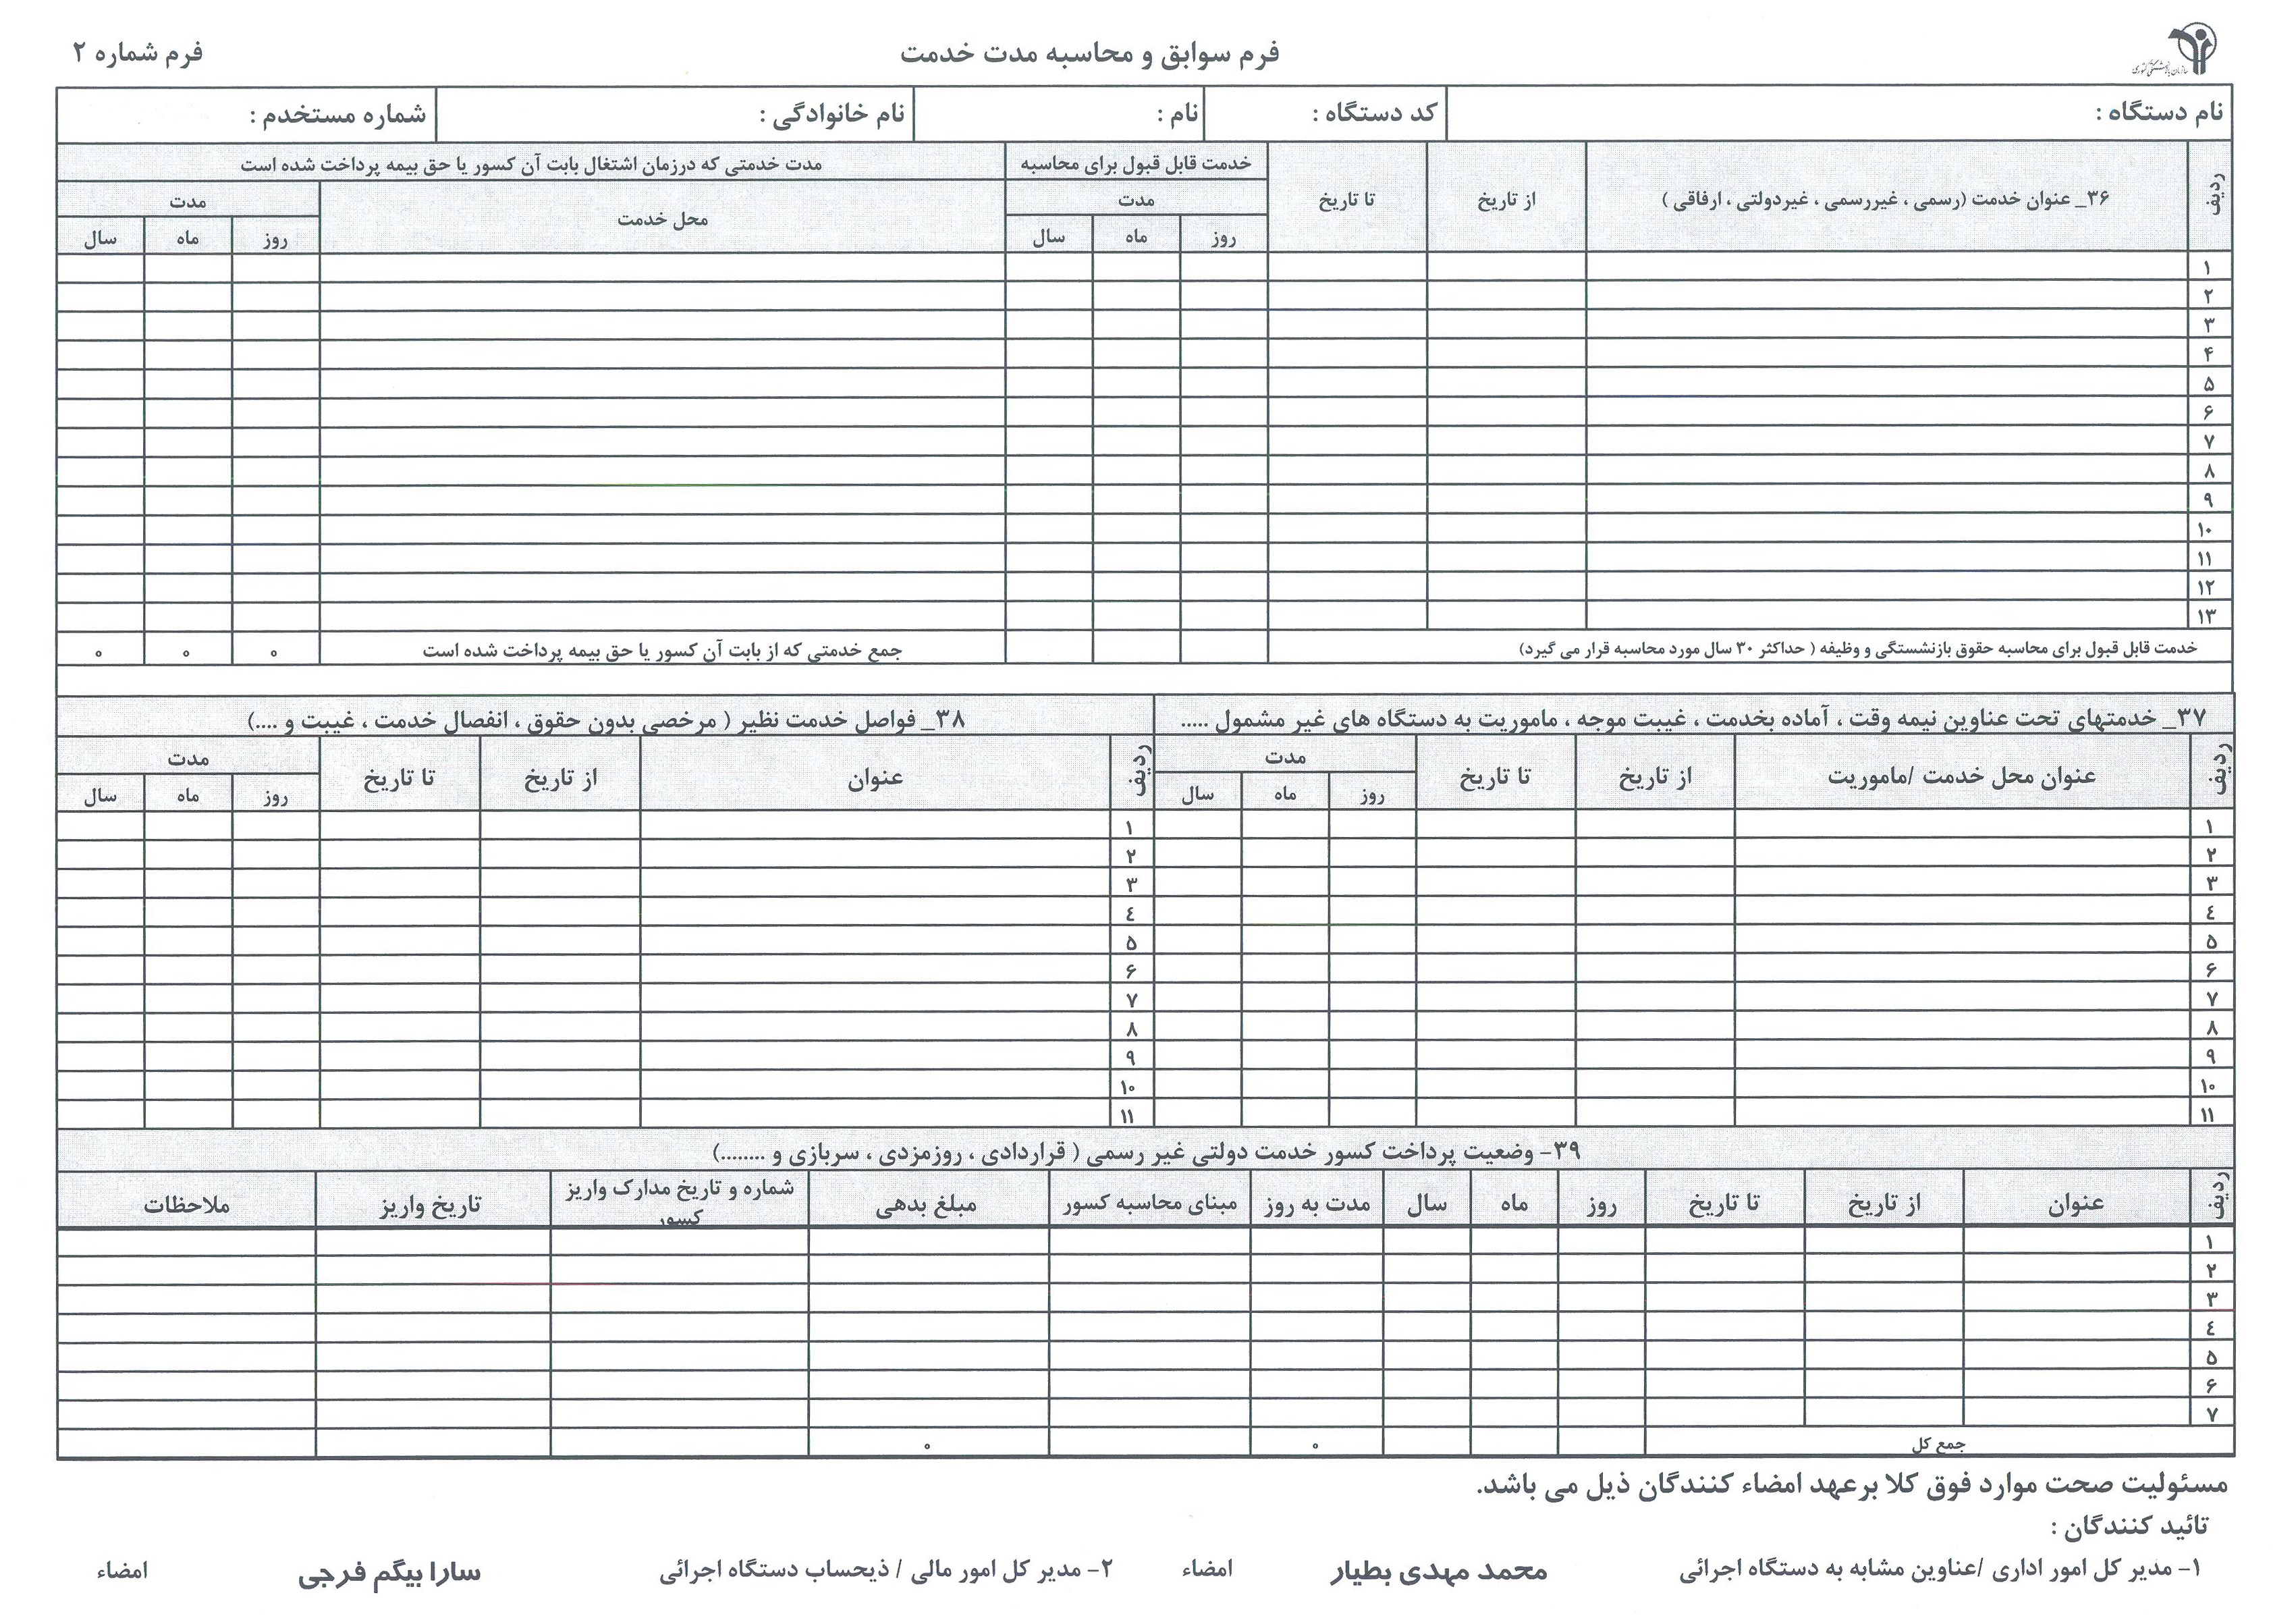 سازمان بازنشستگی کشوری
فرم سوابق و محاسبه مدت خدمت
فرم شماره ۲
نام دستگاه :
کد دستگاه :
نام :
نام خانوادگی :
شماره مستخدم :
ردیف
۳۶_ عنوان خدمت (رسمی ، غیررسمی ، غیردولتی ، ارفاقی )
از تاریخ
تا تاریخ
خدمت قابل قبول برای محاسبه
مدت
روز
ماه
سال
مدت خدمتی که درزمان اشتغال بابت آن کسور یا حق بیمه پرداخت شده است
محل خدمت
مدت
روز
ماه
سال
۱
۲
۳
۴
۵
۶
۷
۸
۹
۱۰
۱۱
۱۲
۱۳
خدمت قابل قبول برای محاسبه حقوق بازنشستگی و وظیفه ( حداکثر ۳۰ سال مورد محاسبه قرار می گیرد)
جمع خدمتی که از بابت آن کسور یا حق بیمه پرداخت شده است
۰
۰
۰
۳۷_ خدمتهای تحت عناوین نیمه وقت ، آماده بخدمت ، غیبت موجه ، ماموریت به دستگاه های غیر مشمول .....
ردیف
عنوان محل خدمت /ماموریت
از تاریخ
تا تاریخ
مدت
روز
ماه
سال
۱
۲
۳
٤
۵
۶
۷
۸
۹
۱۰
۱۱
۳۸_ فواصل خدمت نظیر ( مرخصی بدون حقوق ، انفصال خدمت ، غیبت و ....)
ردیف
عنوان
از تاریخ
تا تاریخ
مدت
روز
ماه
سال
۱
۲
۳
٤
۵
۶
۷
۸
۹
۱۰
۱۱
۳۹- وضعیت پرداخت کسور خدمت دولتی غیر رسمی ( قراردادی ، روزمزدی ، سربازی و ........)
ردیف
عنوان
از تاریخ
تا تاریخ
روز
ماه
سال
مدت به روز
مبنای محاسبه کسور
مبلغ بدهی
شماره و تاریخ مدارک واریز
کسور
تاریخ واریز
ملاحظات
۱
۲
۳
٤
۵
۶
۷
جمع کل
۰
۰
مسئولیت صحت موارد فوق کلا برعهد امضاء کنندگان ذیل می باشد.
تائید کنندگان :
۱- مدیر کل امور اداری /عناوین مشابه به دستگاه اجرائی
محمد مهدی بطیار
امضاء
۲- مدیر کل امور مالی / ذیحساب دستگاه اجرائی
سارا بیگم فرجی
امضاء